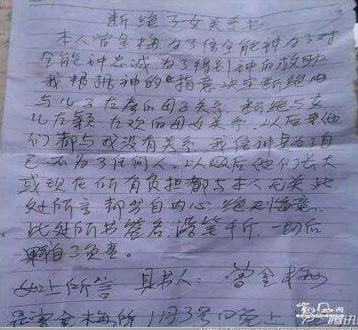 断绝子女关系书
本人曾金梅为了信全能神为了对
全能神忠诚为了得到神的救助
我根据神的指意决定断绝由
与儿子左彦的母子关系，断绝与女
儿左颖左欢的母女关系，以后
们都与我没有关系，我信神是为了自
己不为了任何人，以后他们长大
或现在所有负担都与本人无关，此
处所言都为自内心，绝不悔意，
此处所书签名，一切后
果自己负责。
如上所言 具书人：曾金梅
腾讯